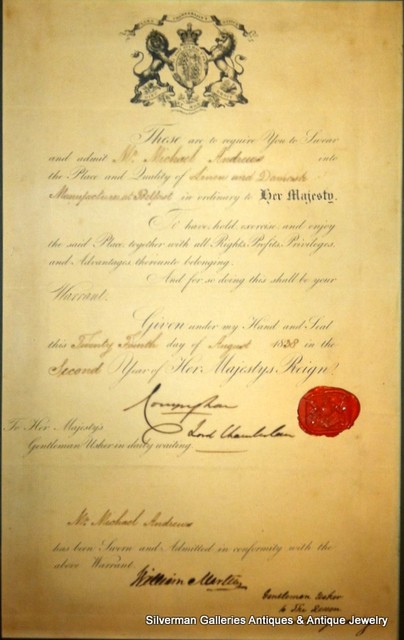 These are to require You to Swear
and admit Mr. Michael Andrews into
the Place and Quality of Linen and Damask
Manufacturer at Belfast in ordinary to Her Majesty.
To have, hold, exercise and enjoy
the said Place, together with all Rights, Profits, Privileges,
and Advantages thereunto belonging.
And for so doing this shall be your
Warrant.
Given under my Hand and Seal
this Twenty Fourth day of August 1838 in the
Second Year of Her Majesty's Reign.
Conyngham
Lord Chamberlain
To Her Majesty's
Gentleman Usher in daily waiting.
Mr. Michael Andrews
has been Sworn and Admitted in conformity with the
above Warrant.
William Martins
Gentleman Usher
to The Queen
Silverman Galleries Antiques & Antique Jewelry